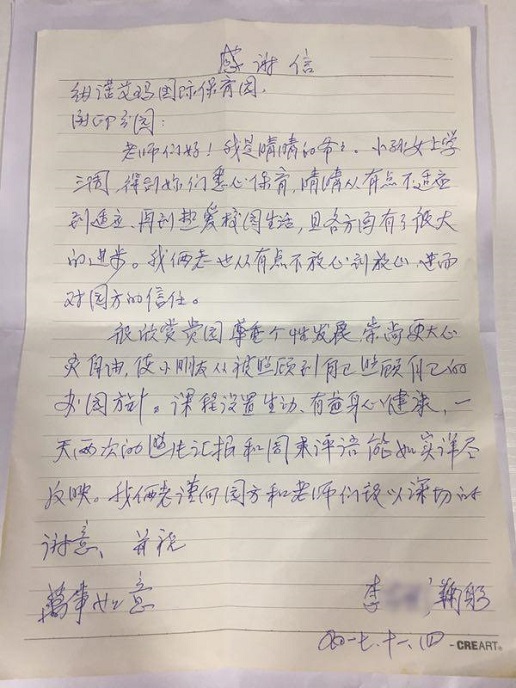 感谢信
纽诺艾玛国际保育园
分园：
老师们好！我是晴晴的爷爷。小孙女上学
三周，得到你们悉心保育，晴晴从有点不适应
到适应，再到热爱校园生活，且各方面有了很大
的进步。我俩老也从有点不放心到放心，进而
对园方的信任。
很欣赏贵园尊重个性发展，崇尚
自由，使小朋友从被照顾到自己照顾自己的
办园方针。课程设置生动、有益身心健康，一
天两次的照片汇报和周末评语能如实详尽
反映。我俩老谨向园方和老师们致以深切的
谢意、并祝
萬事如意
李 鞠躬
二〇一七.十一.四
CREART